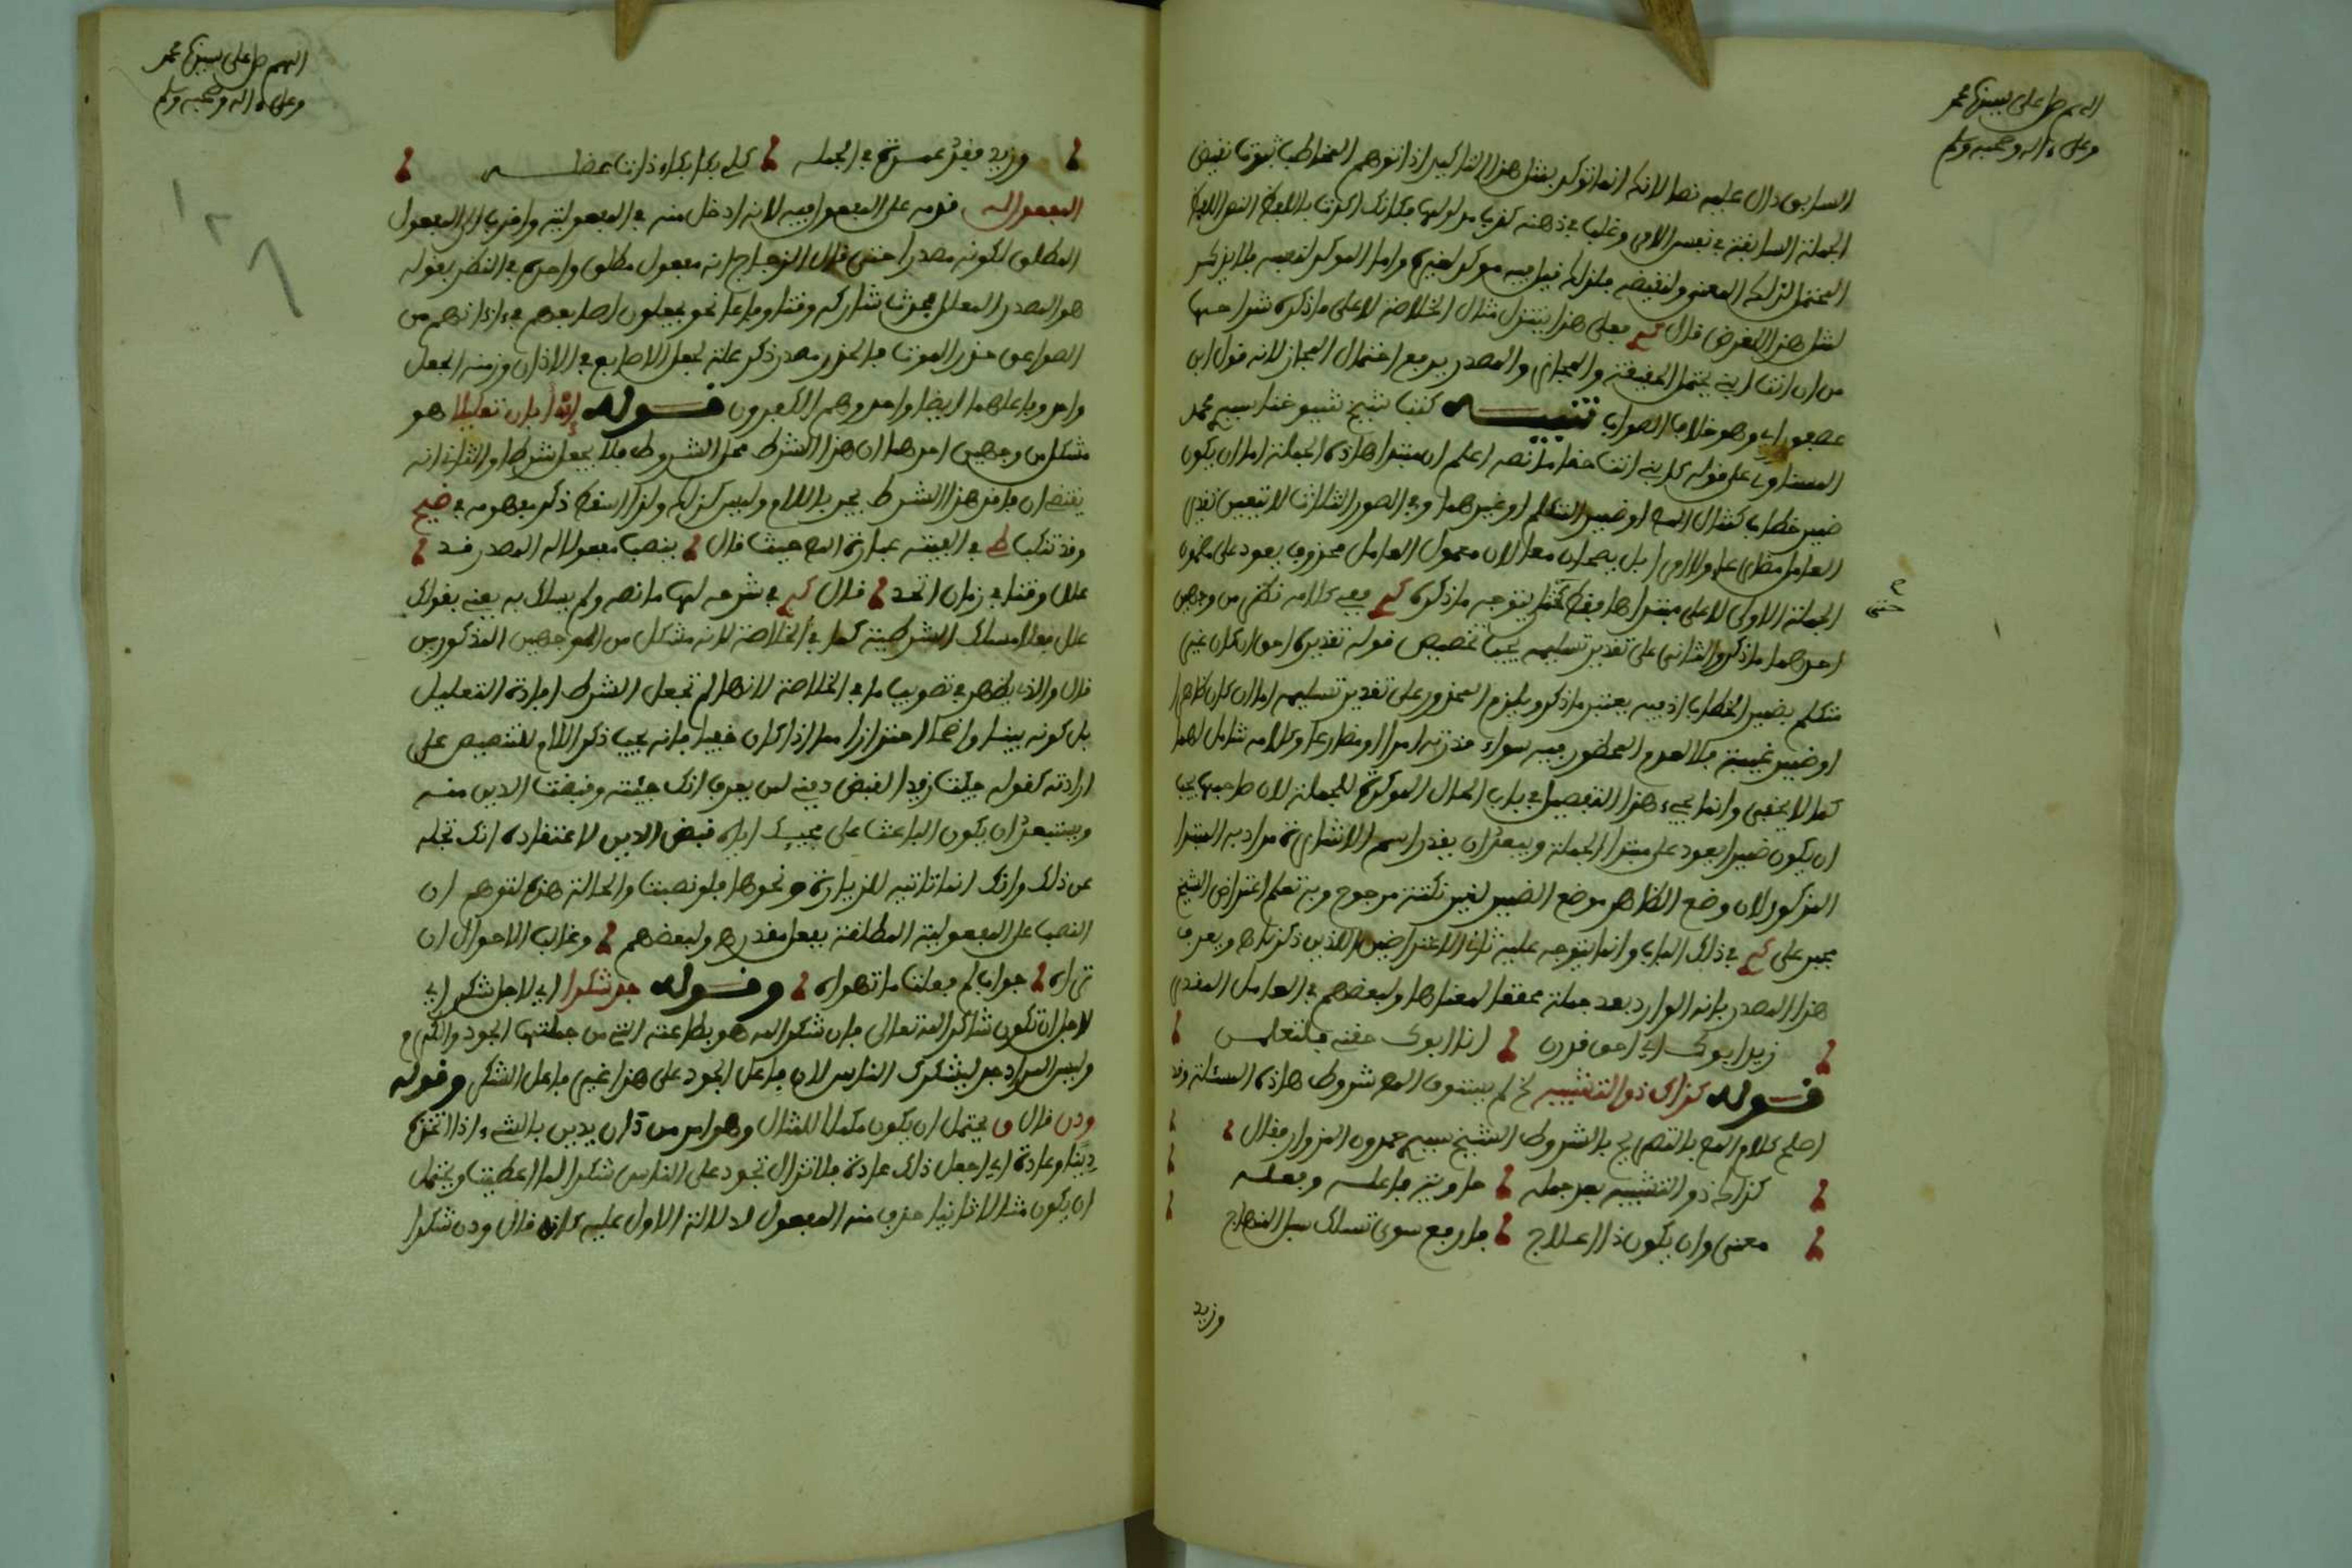 اللهم صل على سيدنا محمد
وعلى ءاله وصحبه وسلم
السابق دال عليه نصا لانه انما توكد بمثل هذا التاكيد اذا توهم المخاطب ثبوت نقيض
الجملة السابقة في نفس الامر وغلب في ذهنه كذب مدلولها فكانك اكدت باللفظ النص اللفظ
المحتمل لذلك المعنى ولنقيضه فلذلك قيل فيه موكد لغيره واما الموكد لنفسه فلا يذكر
لمثل هذا الغرض قال فعلى هذا يتنزل مثال الخلاصة لا على ما ذكره شراحها
من ان انت ابني يحتمل الحقيقة والمجاز والمصدر يرفع احتمال المجاز لانه قول ابن
عصفور اي وهو خلاف الصواب تنبيه كتب شيخ شيوخنا سيدي محمد
المسناوي على قوله كابني انت حقا ما نصه اعلم ان مبتدا هاذه الجملة اما ان يكون
ضمير خطاب كمثال المص او ضمير المتكلم او غيرهما وفي الصور الثلاث لا يتعين تقدير
العامل مضارعا ولا امرا بل يصحان معا لان معمول العامل محذوف يعود على مضمون
الجملة الاولى لا على مبتداها فقط حتى يتوجه ما ذكره ففي كلامه نظر من وجهين
احدهما ما ذكر والثاني على تقدير تسليمه يجب تخصيص قوله تقديره احق ان كان غير
متكلم بضمير الخطاب اذ فيه يعتبر ما ذكر ويلزم المحذور على تقدير تسليمه اما ان كان ظاهرا
او ضمير غيبة فلا لعدم المحظور فيه سواء قدرته امرا او مضارعا وكلامه شامل لهما
كما لا يخفى وانما يجيء هذا التفصيل في باب الحال الموكدة للجملة لان صاحبها يجب
ان يكون ضميرا يعود على مبتدا الجملة ويبعد ان يقدر اسم الاشارة مرادا به المبتدا
المذكور لان وضع الظاهر موضع الضمير لغير نكتة مرجوح وبه تعلم اعتراض الشيخ
في ذلك الباب وانما يتوجه عليه ثاني الاعتراضين اللذين ذكرناهما ويعرف
هذا المصدر بانه الوارد بعد جملة محققا لمعناها ولبعضهم في العامل المقدر
زيد ابوك اي احق قدرن انا ابوك حقني فلتعلمن
قوله كذاك ذو التشبيه الخ لم يستوف المص شروط هاذه المسئلة وقد
اصلح كلام المص بالتصريح بالشروط الشيخ سيدي حمدون المزوار فقال
كذاك ذو التشبيه بعد جمله حاوية فاعله وفعله
معنى وان يكون ذا علاج فارفع سوى تسلك سبل المنهاج
وزيد
حتى
اللهم صل على سيدنا محمد
وعلى ءاله وصحبه وسلم
وزيد فقد عمدة في الجمله كلي بكا بكاء ذات عضله
المفعول له قدمه على المفعول فيه لانه ادخل منه في المفعولية واقرب الى المفعول
المطلق لكونه مصدرا حتى قال الزجاج انه مفعول مطلق واحده في النظر بقوله
هو المصدر المعلل لحدث شاركه وقتا وفاعلا نحو يجعلون اصابعهم في ءاذانهم من
الصواعق حذر الموت فالحذر مصدر ذكر علة لجعل الاصابع في الاذان وزمنه الجعل
واحد وفاعلهما ايضا واحد وهم الكفرون قوله ان ابان تعليلا هو
مشكل من وجهين احدهما ان هذا الشرط محل الشروط فلا يجعل شرطا والثاني انه
يقتضي ان فاقد هذا الشرط يجر باللام وليس كذلك ولذا اسقط ذكر مفهومه في ضيح
وقد تنكب في الفيته عبارة المص حيث قال ينصب مفعولا له المصدر قد
علل وقتا في زمان اتحد قال في شرحه لها ما نصه ولم يسلك به يعني بقولك
علل فعلا مسلك الشرطية كما في الخلاصة لانه مشكل من الوجهين المذكورين
قال والذي يظهر في تصويب ما في الخلاصة لانها لم تجعل الشرط افادة التعليل
بل كونه بينا واضحا احترازا مما اذا كان خفيا فانه يجب ذكر اللام للتنصيص على
ارادته كقوله جئت زيدا لقبض دينه لمن يعرف انك جئته وقبضت الدين منه
ويستبعد ان يكون الباعث على مجيئك اياه قبض الدين لاعتقاده انك تجله
عن ذلك وانك انما تاتيه للزيارة ونحوها فلو نصبت والحالة هذه لتوهم ان
النصب على المفعولية المطلقة بفعل مقدر ولبعضهم وغالب الاحوال ان
تراه جواب لم فعلت ما تهواه وقوله جد شكرا اي لاجل شكر اي
لاجل ان تكون شاكرا لله تعالى فان شكر الله هو بطاعته التي من جملتها الجود والكرم
وليس المراد جد ليشكرك الناس لان فاعل الجود على هذا غير فاعل الشكر وقوله
ودن قال ق يحتمل ان يكون مكملا للمثال وهو امر من دان يدين بالشيء اذا اتخذه
دينا وعادة اي اجعل ذلك عادة فلا تزال تجود على الناس شكرا لما اعطيت ويحتمل
ان يكون مثالا ثانيا حذف منه المفعول لدلالة الاول عليه كانه قال ودن شكرا